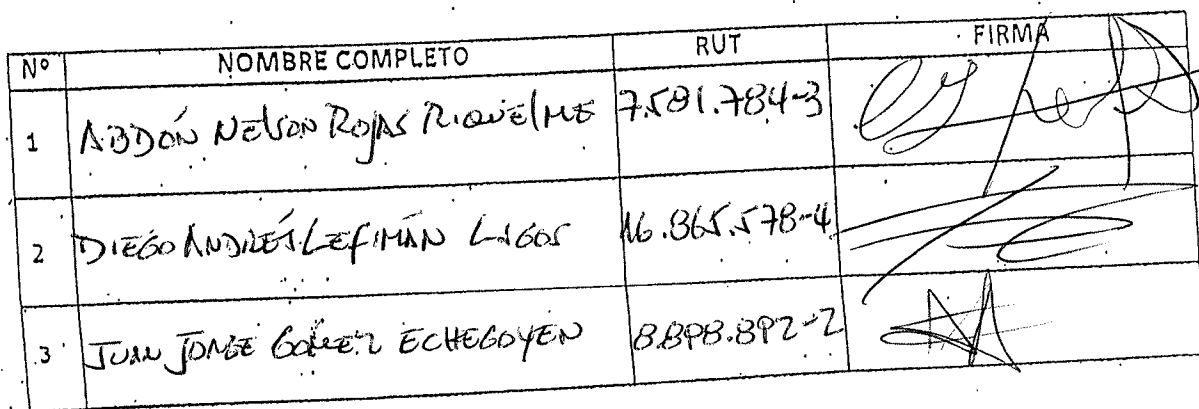 Nº NOMBRE COMPLETO RUT FIRMA
1 ABDÓN NELSON ROJAS RIQUELME 7.581.784-3
2 DIEGO ANDRÉS LEFIMÁN LAGOS 16.865.578-4
3 JUAN JORGE GOMEZ ECHEGOYEN 8.898.892-2